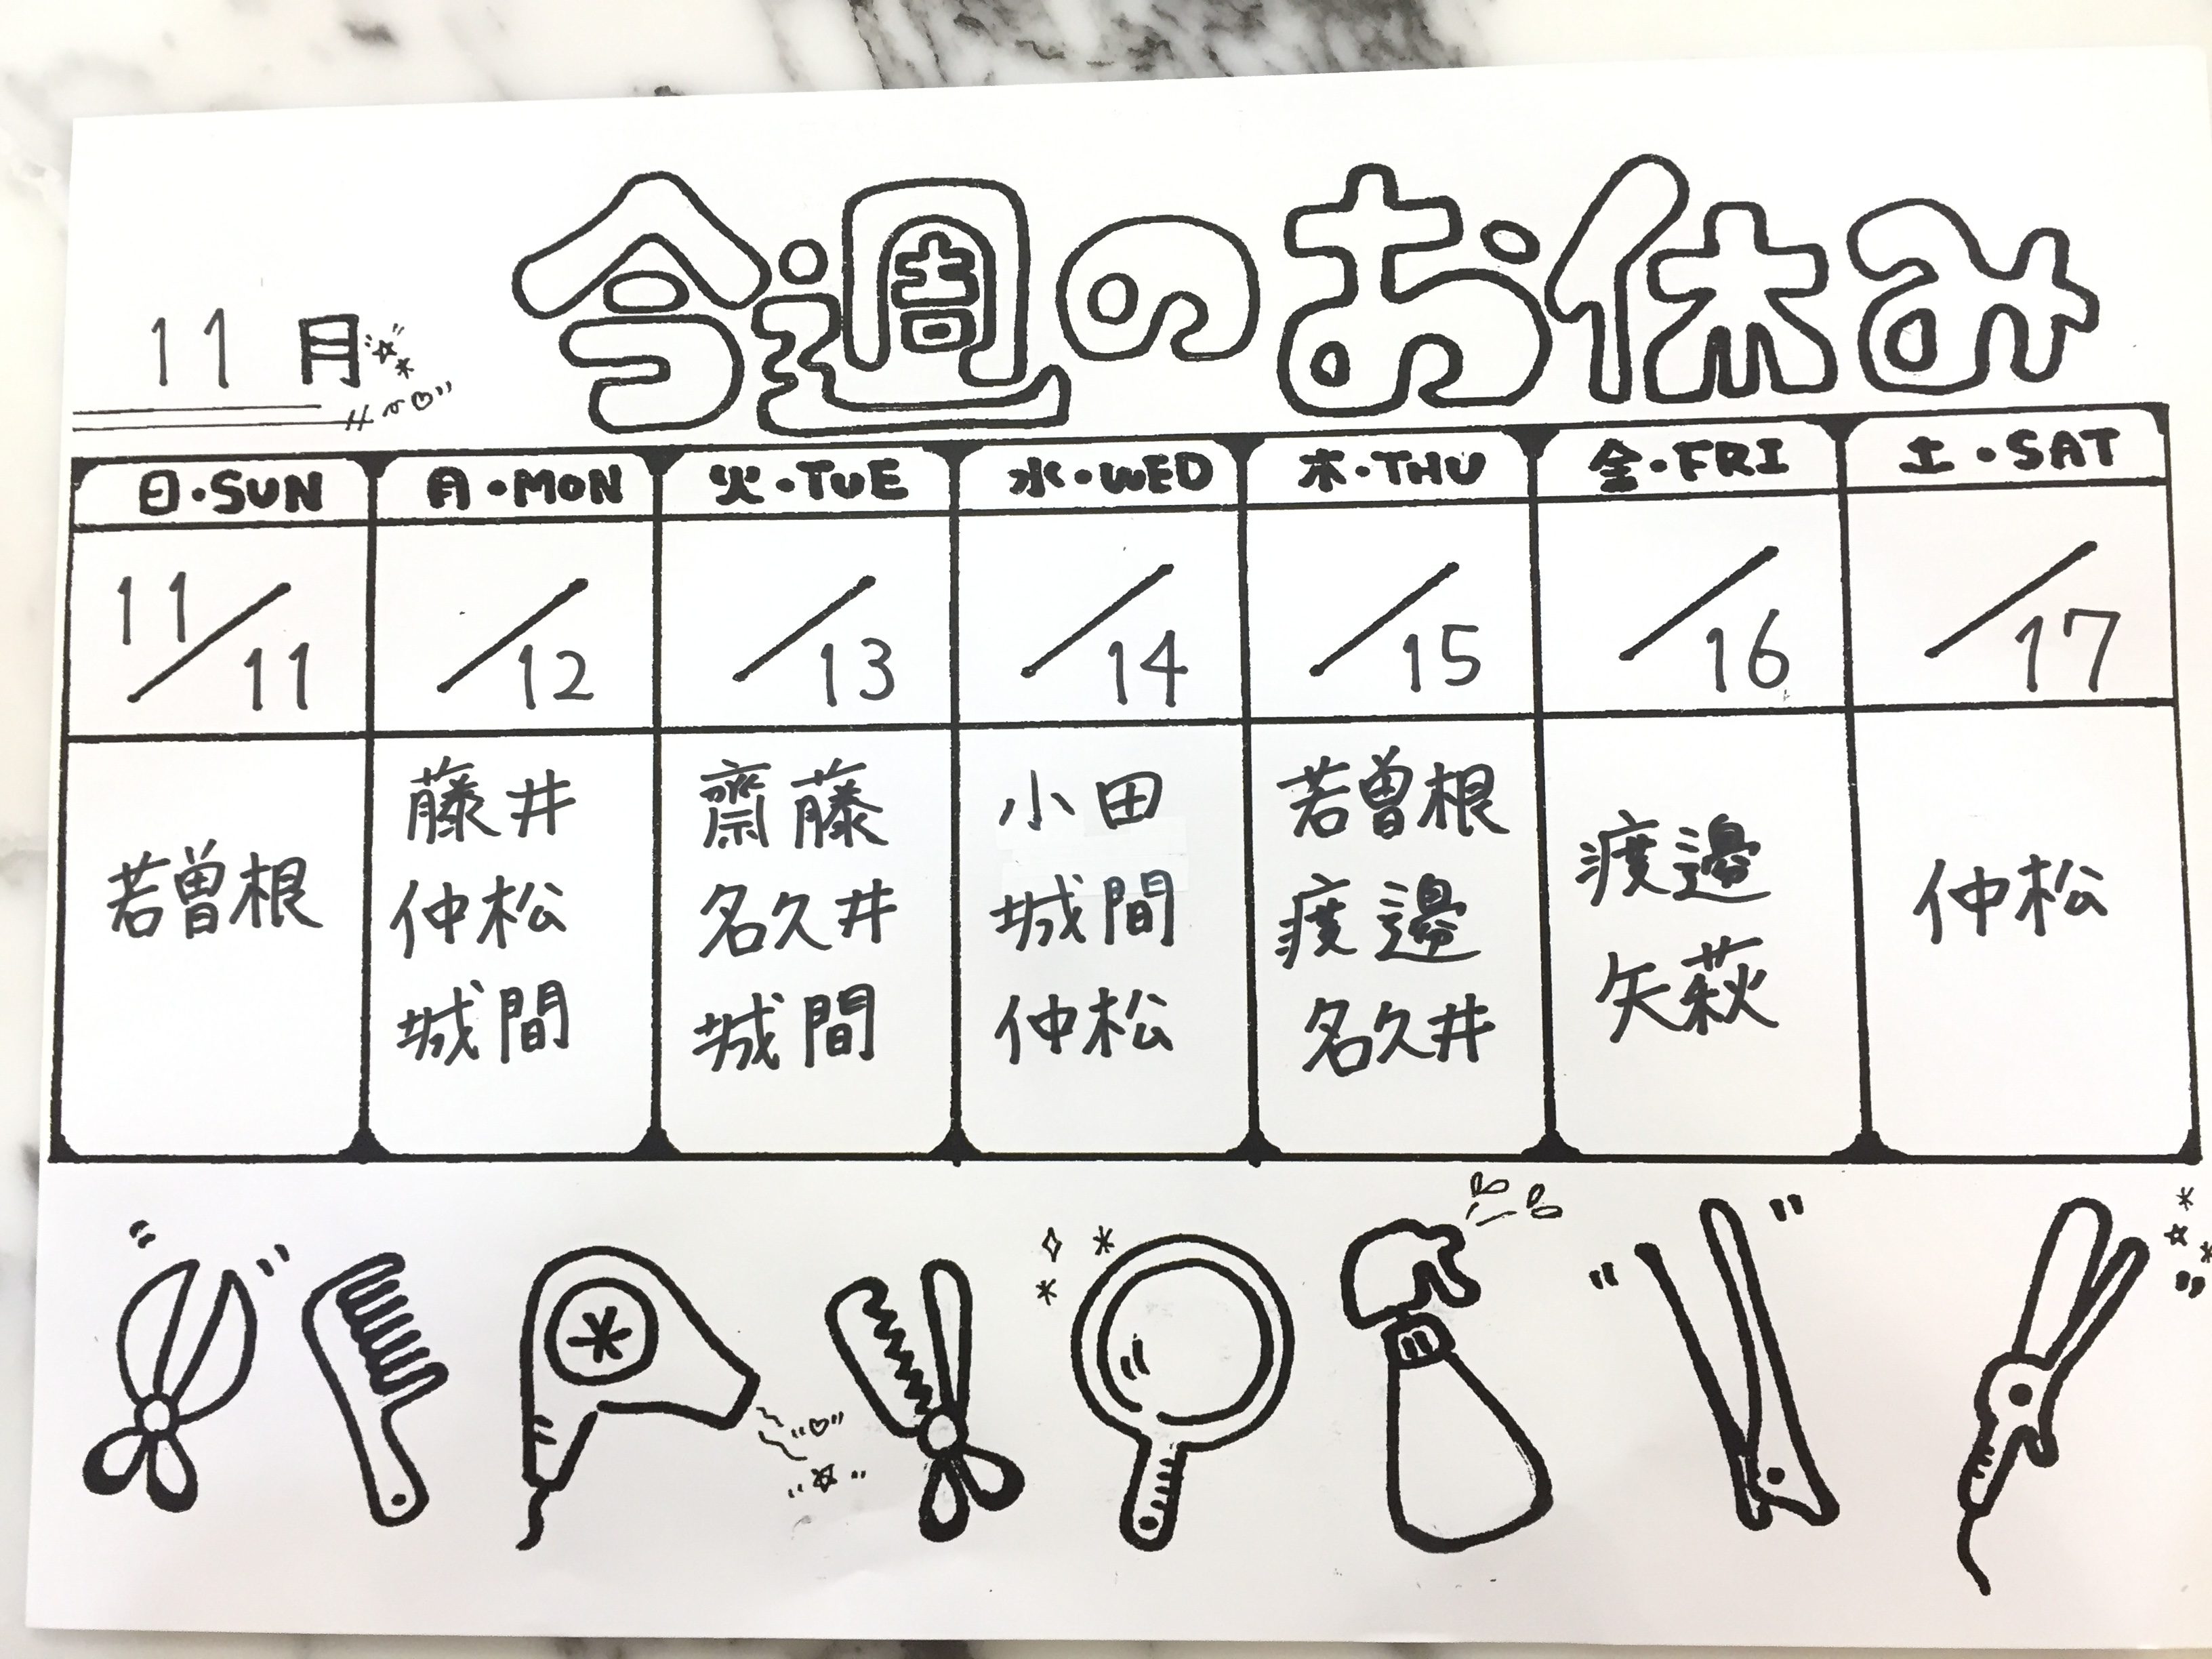 今週のお休み
11月
日・SUN 月・MON 火・TUE 水・WED 木・THU 金・FRI 土・SAT
11/11 /12 /13 /14 /15 /16 /17
若曽根
藤井
仲松
城間
齋藤
名久井
城間
小田
城間
仲松
若曽根
渡邊
名久井
渡邊
矢萩
仲松